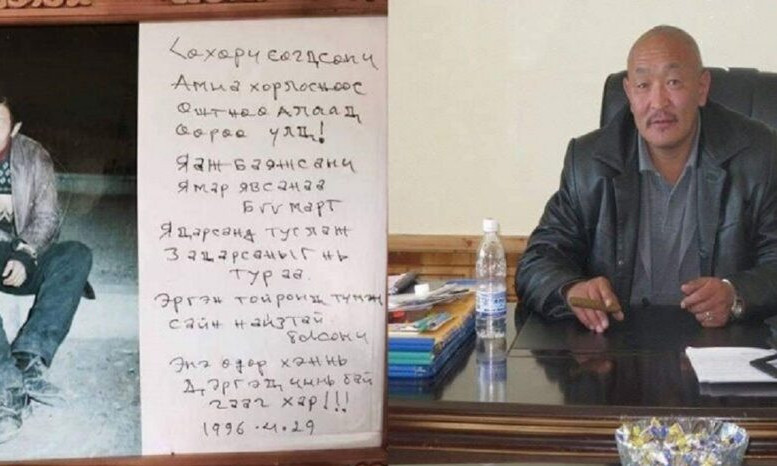 Сохорч согдсонч
Амиа хорлосноос
Өштнөө алаад
Өөрөө үлд!
Яаж баяжсанч
Ямар явсанаа
Бүү март
Ядарсанд туслаж
Задарсаныг нь
Тур аа.
Эргэн тойронд түмэн
сайн найзтай
болсонч
Энэ өдөр хэннь
Дэргэд чинь бай
гааг хар!!!
1996.4.29